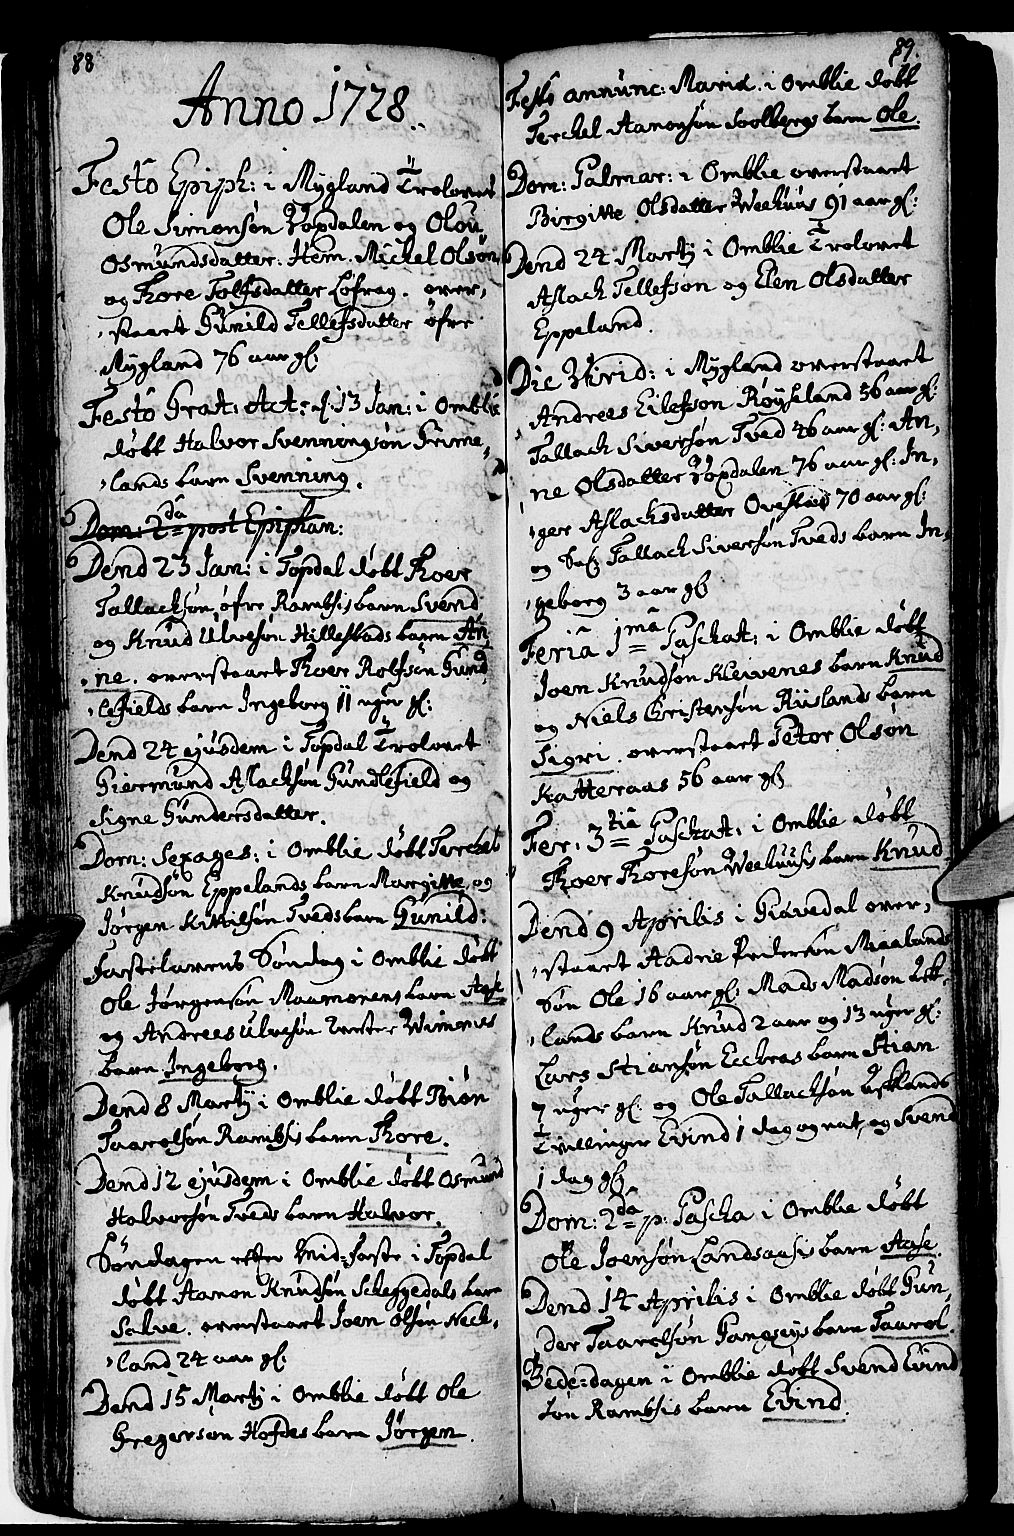 88
Anno 1728.
Festo Epiph: i Mygland Trolovet
Ole Simonsøn Topdalen og Olou
Osmundsdatter. Item. Mickel Olsøn
og Thore Tolfsdatter Løfrag. over-
staaet Gunild Tellefsdatter øfre
Mygland 76 aar gl.
Festo Grat: Act: d. 13 Jan: i Omblie
døbt Halvor Svenningsøn Grime-
lands barn Svenning.
Dom: 2da post Epiphan:
Dend 23 Jan: i Topdal døbt Thoer
Tallacksøn øfre Rambsis barn Svend
og Knud Ulvesøn Hillestads barn An
ne. overstaaet Thoer Rolfsøn Gund
lefields barn Ingeborg 11 uger gl:
Dend 24 ejusdem i Topdal Trolovet
Giermund Aslacksøn Gundlefield og
Signe Gundersdatter.
Dom: Sexages: i Omblie døbt Terchel
Knudsøn Eppelands barn Margitte og
Jørgen Kittilsøn Tveds barn Gunild:
Fastelavens Søndag i Omblie døbt
Ole Jørgensøn Maamoens barn Aase
og Andrees Ulvesøn Vimenes
barn Ingeborg.
Dend 8 Martij i Omblie døbt Biøn
Taarolsøn Rambsis barn Thore.
Dend 12 ejusdem i Omblie døbt Osmund
Halvorsøn Tveds barn Halvor.
Søndagen efter Mid-faste i Topdal
døbt Aamon Knudsøn Scheggedals barn
Salve. overstaaet Joen Olsøn Neck-
land 24 aar gl.
Dend 15 Martij i Omblie døbt Ole
Gregersøn Hofdes barn Jørgen.
89.
Festo annunc: Mariæ. i Omblie døbt
Terchel Aamonsøn Soolbergs barn Ole.
Dom: Palmar: i Omblie overstaaet
Birgitte Olsdatter Weehuus 91 aar gl:
Dend 24 Martij i Omblie Trolovet
Aslach Tellefsøn og Elen Olsdatter
Eppeland.
Die Virid: i Mygland overstaaet
Andrees Eilefsøn Røyseland 56 aar gl:
Tallach Siversøn Tved 46 aar gl: An-
ne Olsdatter Topdalen 76 aar gl: In-
ger Aslachsdatter 70 aar gl:
og Tallach Siversøn Tveds barn In-
geborg 3 aar gl
Feria 1ma Paschat: i Omblie døbt
Joen Knudsøn Kleivenes barn Knud
og Niels Christensøn Riislands barn
Sigri. overstaaet Petor Olsøn
Katteraas 56 aar gl
Fer: 3tia Paschat: i Omblie døbt
Thoer Thoresøn Weehuusis barn Knud
Dend 9 Aprilis i Giøvedal over-
staaet Aadne Pedersøn Maalands
Søn Ole 16 aar gl: Mads Madsøn Ask-
lands barn Knud 2 aar og 13 uger gl:
Lars Stiansøn Eckraas barn Stian
7 uger gl: og Ole Tallachsøn Asklands
Tvillinger Evind 1 dag og nat, og Svend
1 dag gl.
Dom: 2da p: Pascha i Omblie døbt
Ole Joensøn Landsaasis barn Aase.
Dend 14 Aprilis i Omblie døbt Gun-
der Taarolsøn barn Taarol.
Bede-dagen i Omblie døbt Svend Evind
søn Rambsis barn Evind.